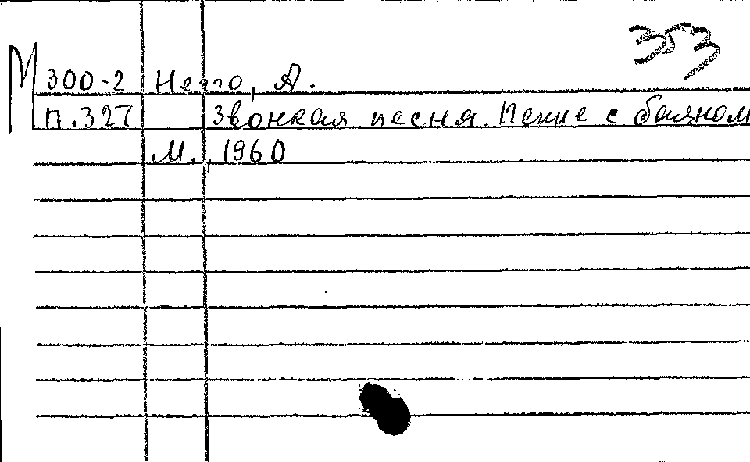 353
М 300-2 Нечто, А.
п.327 Звонкая песня. Пение с баяном
М., 1960